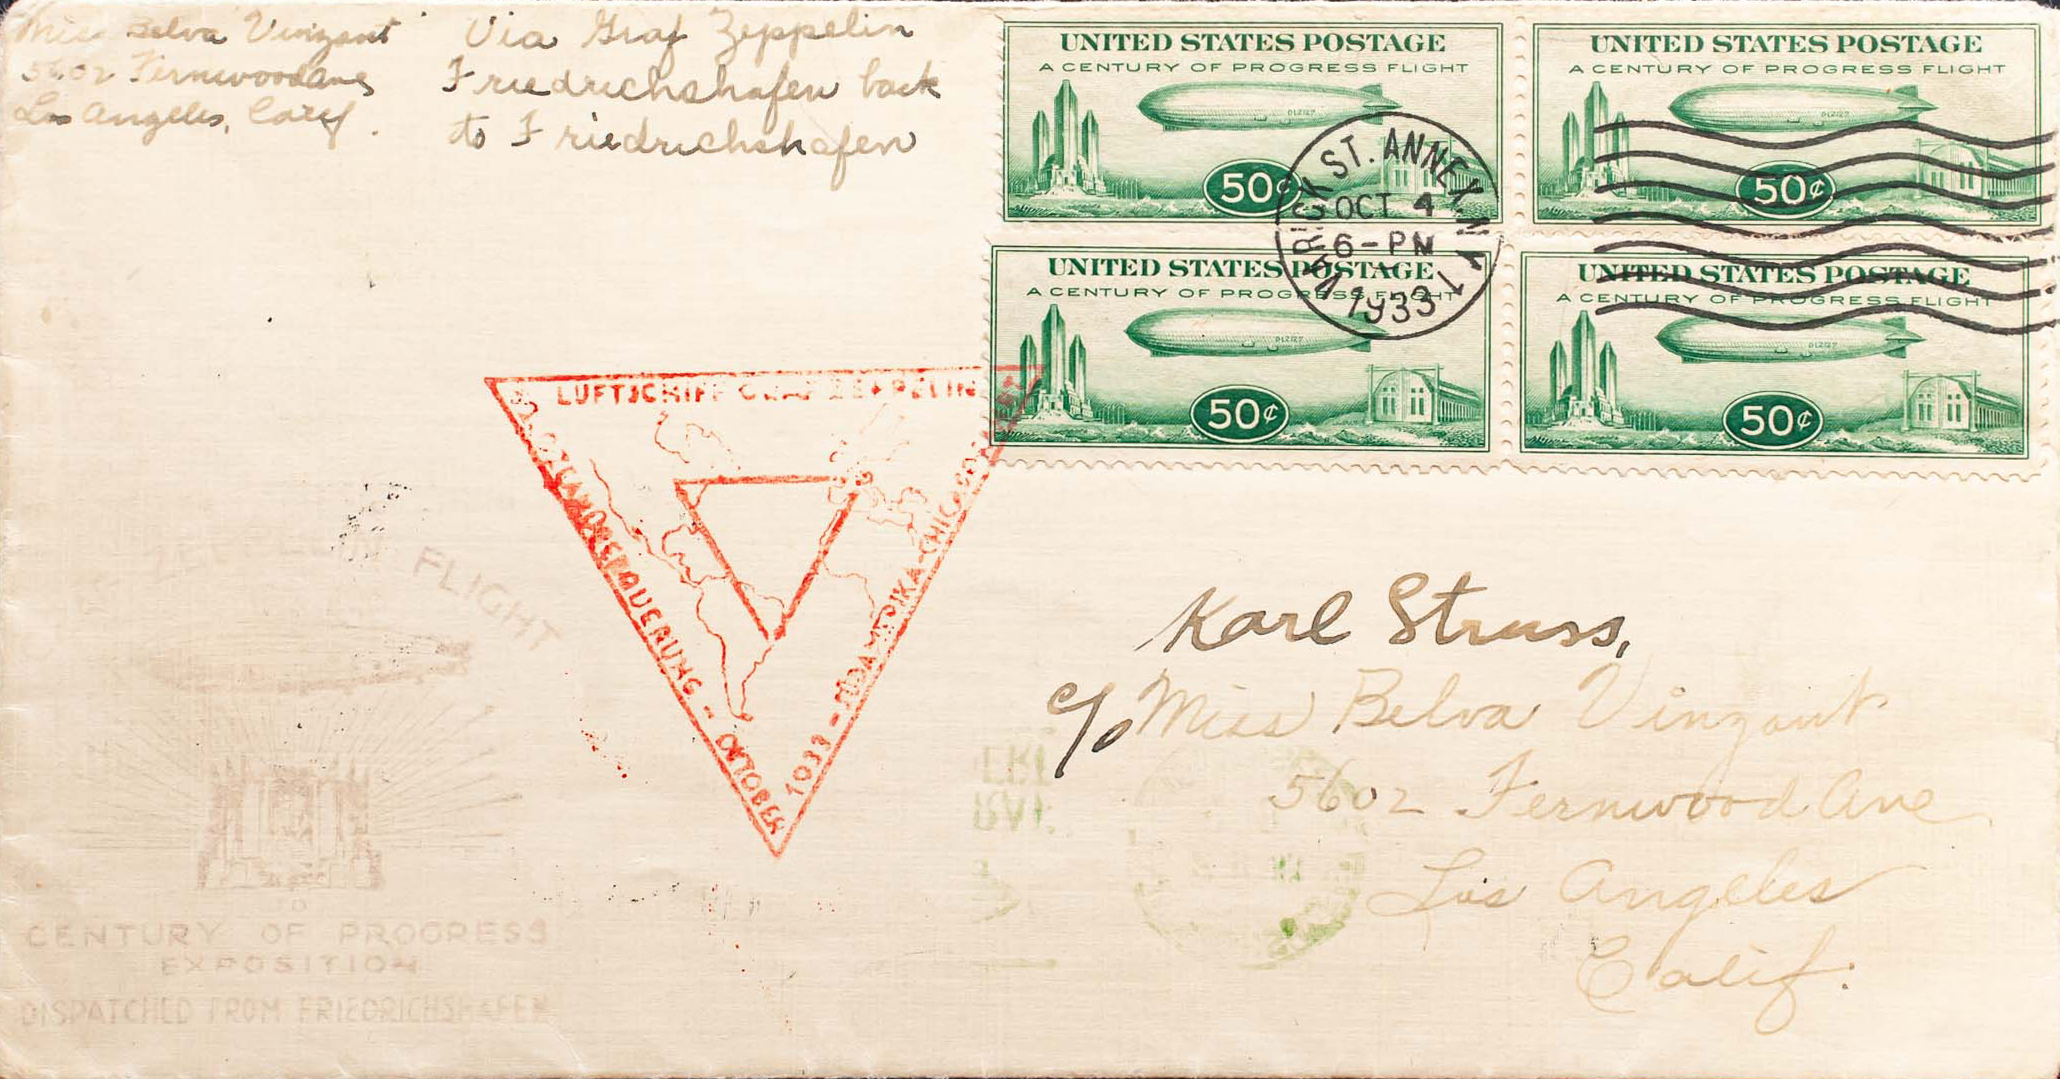 Miss Belva Vinzant
5602 Fernwood Ave
Los Angeles, Calif.
Via Graf Zeppelin
Friedrichshafen back
to Friedrichshafen
UNITED STATES POSTAGE
A CENTURY OF PROGRESS FLIGHT
50¢
UNITED STATES POSTAGE
A CENTURY OF PROGRESS FLIGHT
50¢
UNITED STATES POSTAGE
A CENTURY OF PROGRESS FLIGHT
50¢
UNITED STATES POSTAGE
A CENTURY OF PROGRESS FLIGHT
50¢
VARICK ST. ANNEX. N.Y.
OCT 4
6-PM
1933
LUFTSCHIFF GRAF ZEPPELIN
OZEANÜBERQUERUNG - OKTOBER
1933 - SÜDAMERIKA-CHICAGO
ZEPPELIN FLIGHT
TO
CENTURY OF PROGRESS
EXPOSITION
DISPATCHED FROM FRIEDRICHSHAFEN
Karl Struss,
c/o Miss Belva Vinzant
5602 Fernwood Ave
Los Angeles
Calif.